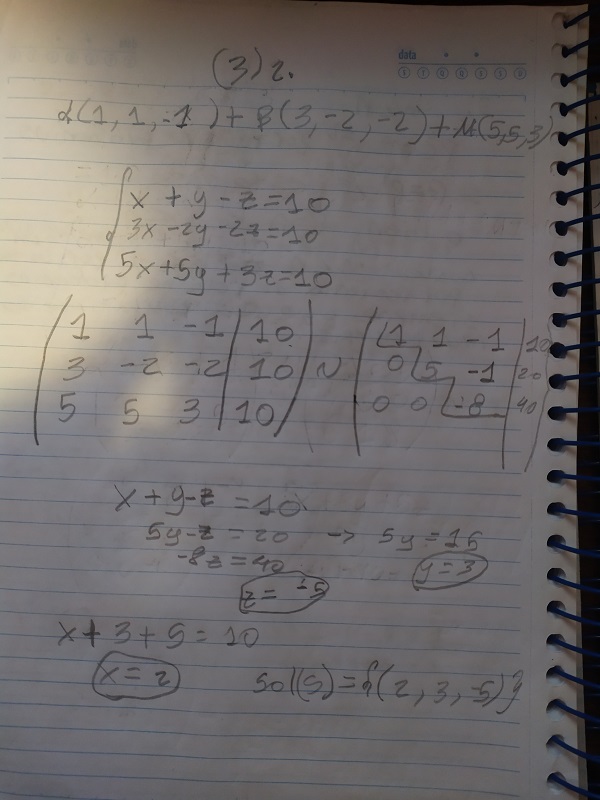 data
(3) 2.
α(1, 1, -1) + β(3, -2, -2) + μ(5, 5, 3)
x + y - z = 10
3x - 2y - 2z = 10
5x + 5y + 3z = 10
1 1 -1 | 10 ~ 1 1 -1 | 10
3 -2 -2 | 10 0 5 -1 | 20
5 5 3 | 10 0 0 -8 | 40
x + y - z = 10
5y - z = 20 -> 5y = 15
-8z = 40 y = 3
z = -5
x + 3 + 5 = 10
x = 2 sol(S) = {(2, 3, -5)}